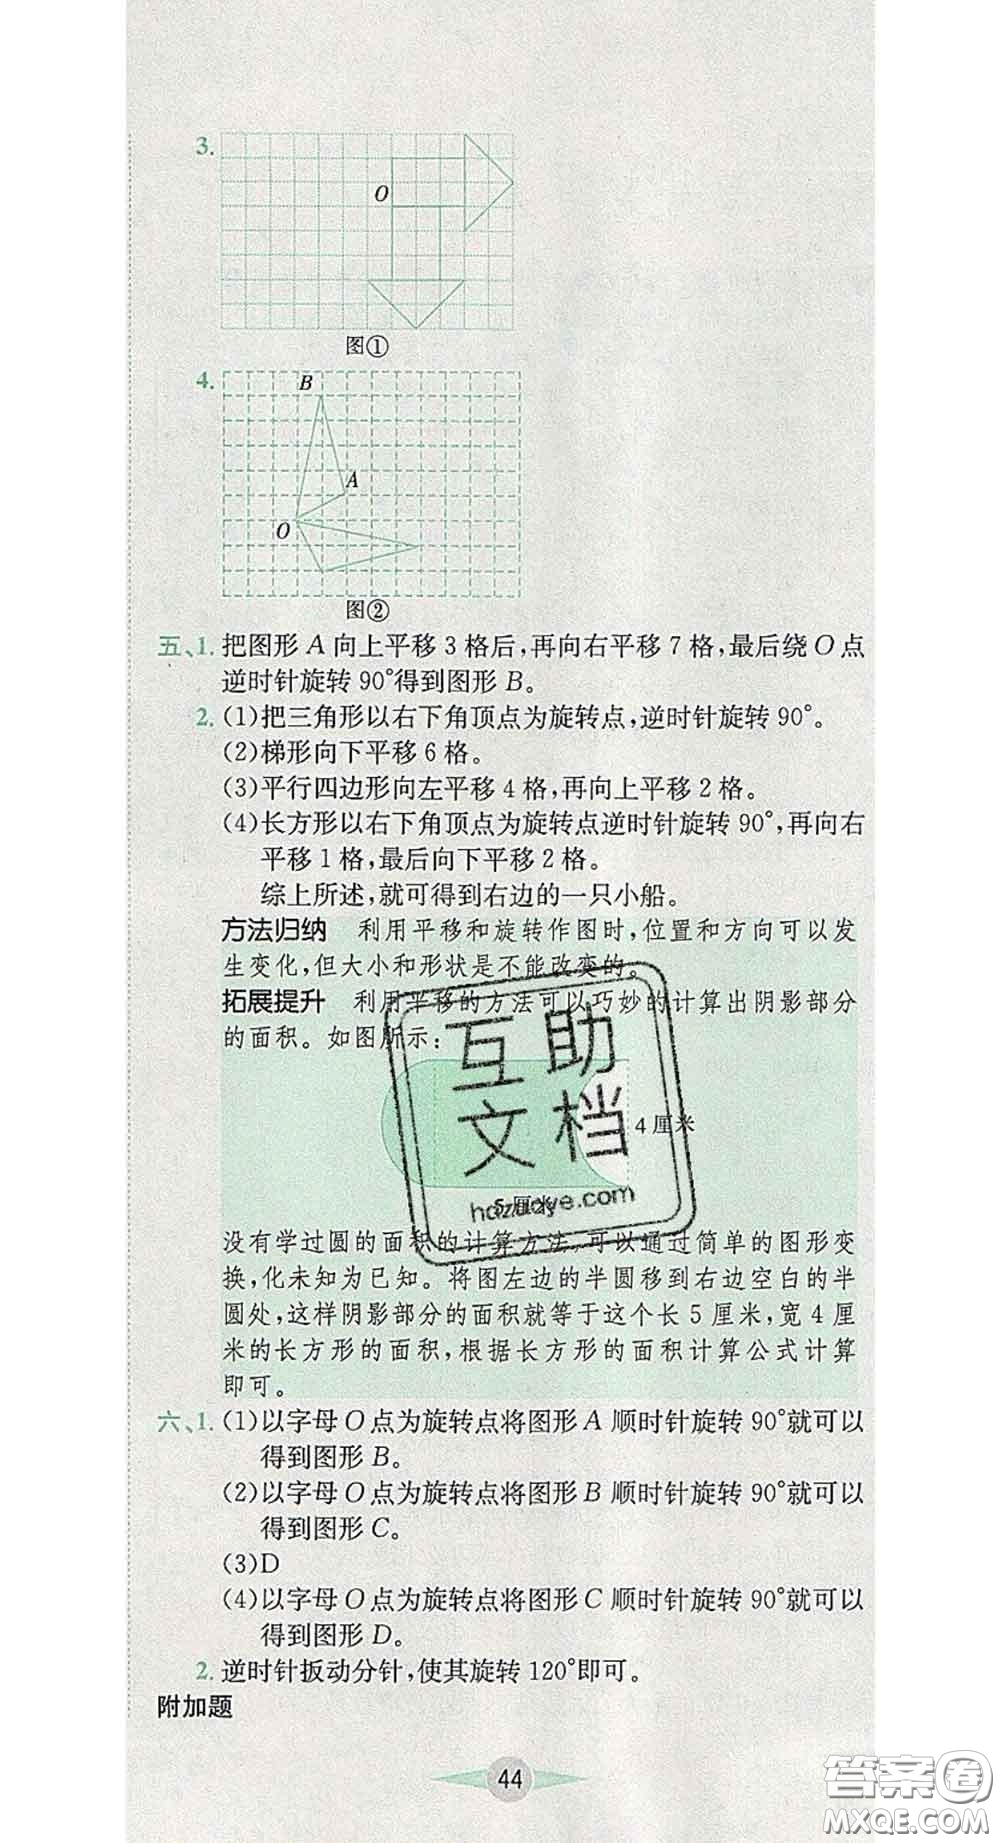 3.
O
图①
4.
B
A
O
图②
五、1. 把图形 A 向上平移 3 格后，再向右平移 7 格，最后绕 O 点
逆时针旋转 90°得到图形 B。
2. (1)把三角形以右下角顶点为旋转点，逆时针旋转 90°。
(2)梯形向下平移 6 格。
(3)平行四边形向左平移 4 格，再向上平移 2 格。
(4)长方形以右下角顶点为旋转点逆时针旋转 90°，再向右
平移 1 格，最后向下平移 2 格。
综上所述，就可得到右边的一只小船。
方法归纳 利用平移和旋转作图时，位置和方向可以发
生变化，但大小和形状是不能改变的。
拓展提升 利用平移的方法可以巧妙的计算出阴影部分
的面积。如图所示：
4 厘米
5 厘米
互助
文档
hdzuoye.com
没有学过圆的面积的计算方法，可以通过简单的图形变
换，化未知为已知。将图左边的半圆移到右边空白的半
圆处，这样阴影部分的面积就等于这个长 5 厘米，宽 4 厘
米的长方形的面积，根据长方形的面积计算公式计算
即可。
六、1. (1)以字母 O 点为旋转点将图形 A 顺时针旋转 90°就可以
得到图形 B。
(2)以字母 O 点为旋转点将图形 B 顺时针旋转 90°就可以
得到图形 C。
(3)D
(4)以字母 O 点为旋转点将图形 C 顺时针旋转 90°就可以
得到图形 D。
2. 逆时针扳动分针，使其旋转 120°即可。
附加题
44
答案卷
MXQE.COM